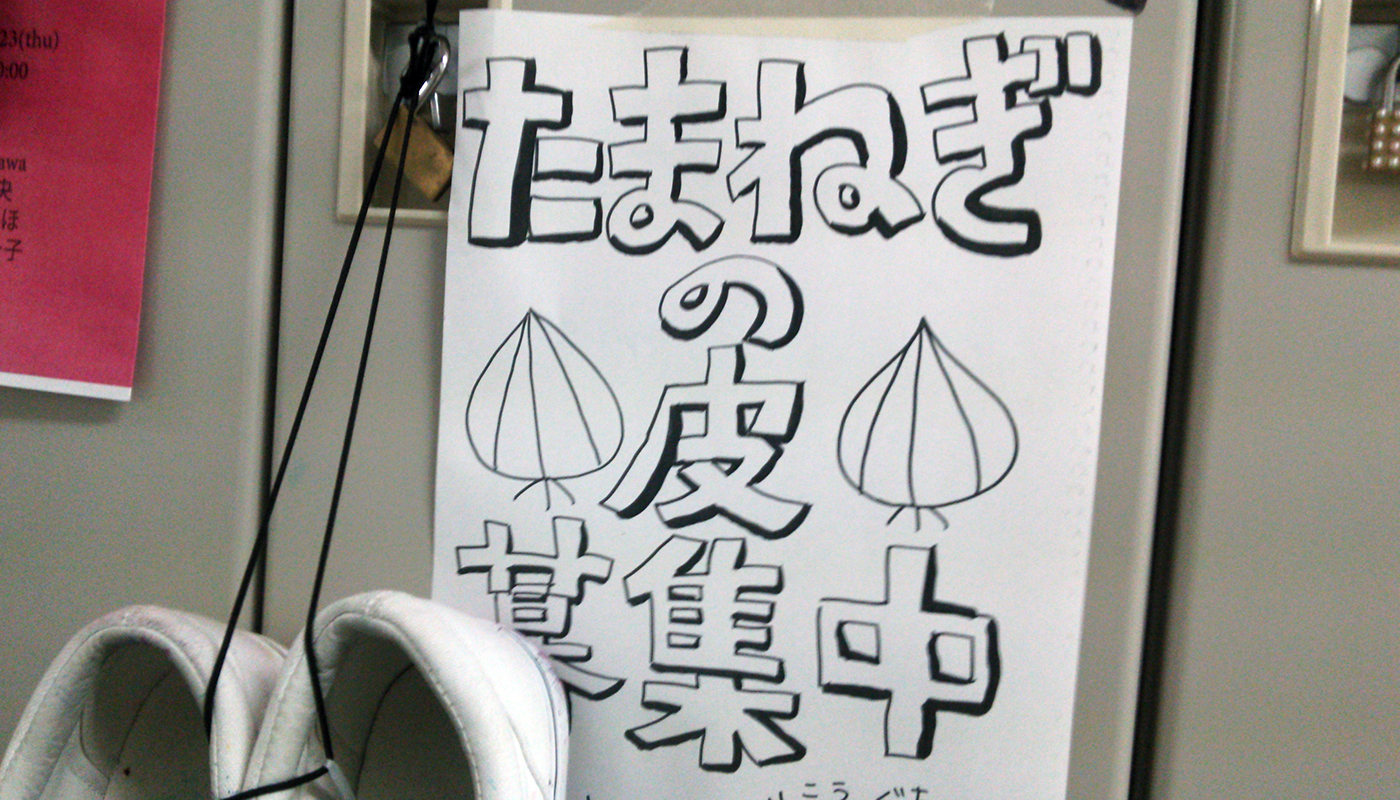 23(thu)
0:00
awa
央
ほ
子
たまねぎ
の
皮
募集中